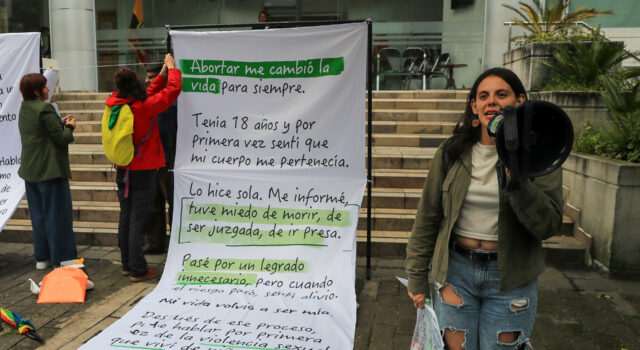 Abortar me cambió la
vida para siempre.
Tenía 18 años y por
primera vez sentí que
mi cuerpo me pertenecía.
Lo hice sola. Me informé,
tuve miedo de morir, de
ser juzgada, de ir presa.
Pasé por un legrado
innecesario, pero cuando
el riesgo pasó, sentí alivio.
Mi vida volvía a ser mía.
Después de ese proceso,
Pude hablar por primera
vez de la violencia sexual
que viví de